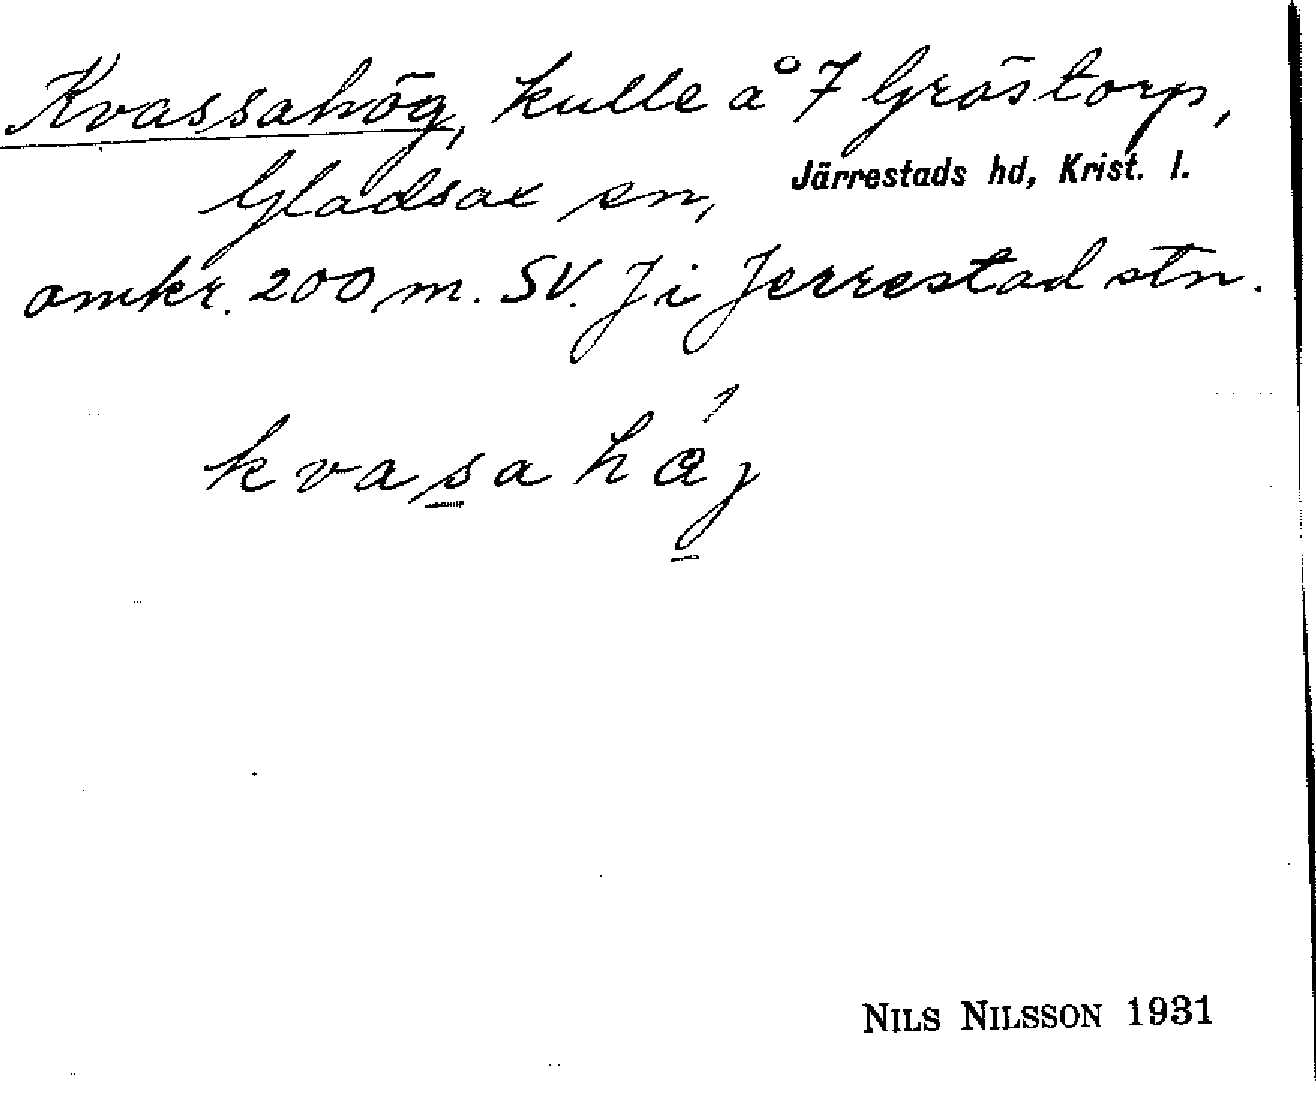 Kvassahög, kulle å 7 Gröstorp,
Gladsax sn, Järrestads hd, Krist. l.
omkr. 200 m. SV. J i Jerrestad stn.
kvasahøj
NILS NILSSON 1931